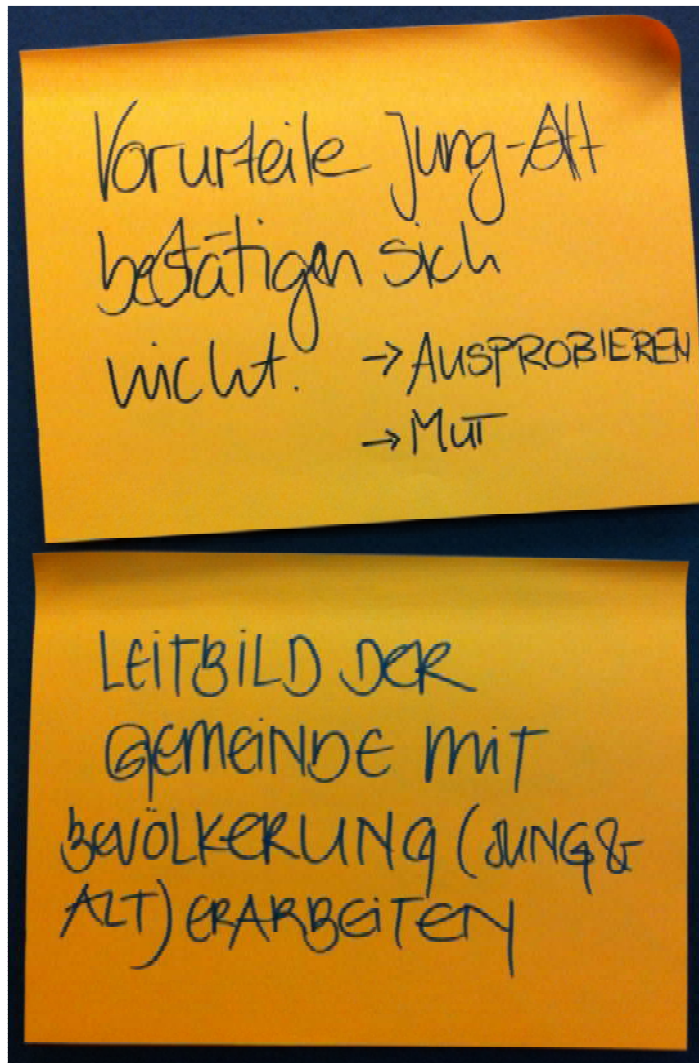 Vorurteile Jung-Alt
bestätigen sich
nicht. → AUSPROBIEREN
→ MUT
LEITBILD DER
GEMEINDE MIT
BEVÖLKERUNG (JUNG &
ALT) ERARBEITEN